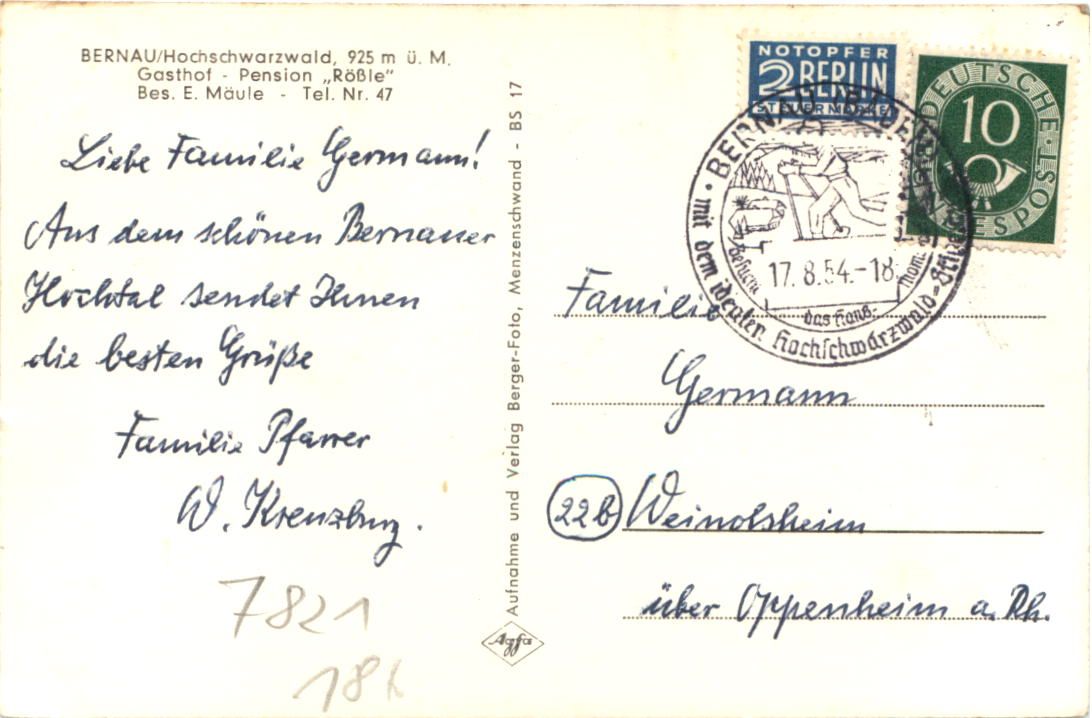 BERNAU/Hochschwarzwald, 925 m ü. M.
Gasthof - Pension „Rößle"
Bes. E. Mäule - Tel. Nr. 47
Liebe Familie Germann!
Aus dem schönen Bernauer
Hochtal sendet Ihnen
die besten Grüße
Familie Pfarrer
W. Kreuzburg.
7821
18h
Aufnahme und Verlag Berger-Foto, Menzenschwand - BS 17
Agfa
NOTOPFER
2 BERLIN
STEUERMARKE
DEUTSCHE
10
BUNDESPOST
BERNAU BADEN
17.8.54.-18
Besucht
das Hans-
Thom
mit dem idealen Hochschwarzwald-
Familie
Germann
22b Weinolsheim
über Oppenheim a. Rh.